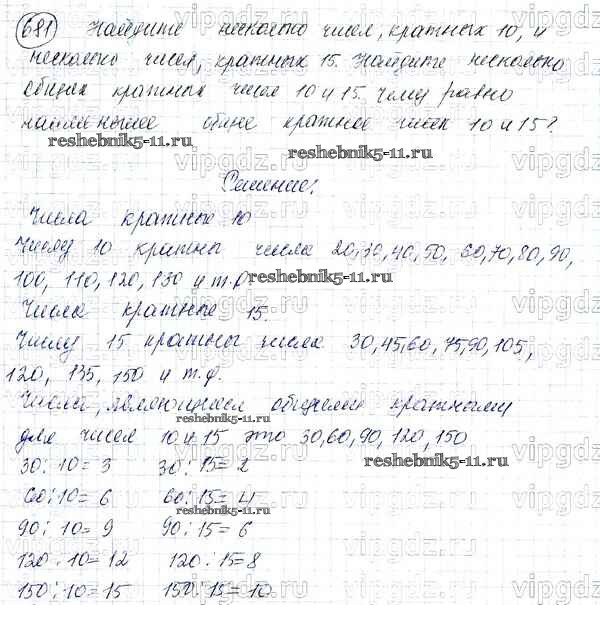 681 Найдите несколько чисел, кратных 10, и
несколько чисел, кратных 15. Найдите несколько
общих кратных чисел 10 и 15. Чему равно
наименьшее общее кратное чисел 10 и 15?
reshebnik5-11.ru
reshebnik5-11.ru
Решение:
Числа кратные 10
Числу 10 кратны числа 20,30,40,50, 60,70,80,90,
100, 110,120,130 и т.д
reshebnik5-11.ru
Числа кратные 15.
Числу 15 кратны числа 30,45,60,75,90,105,
120, 135, 150 и т.д.
Числа, являющиеся общими кратными
reshebnik5-11.ru
для чисел 10 и 15 это 30,60,90,120,150
reshebnik5-11.ru
30:10=3 30:15=2
60:10=6 60:15=4
reshebnik5-11.ru
90:10=9 90:15=6
120:10=12 120:15=8
150:10=15 150:15=10
vipgdz.ru